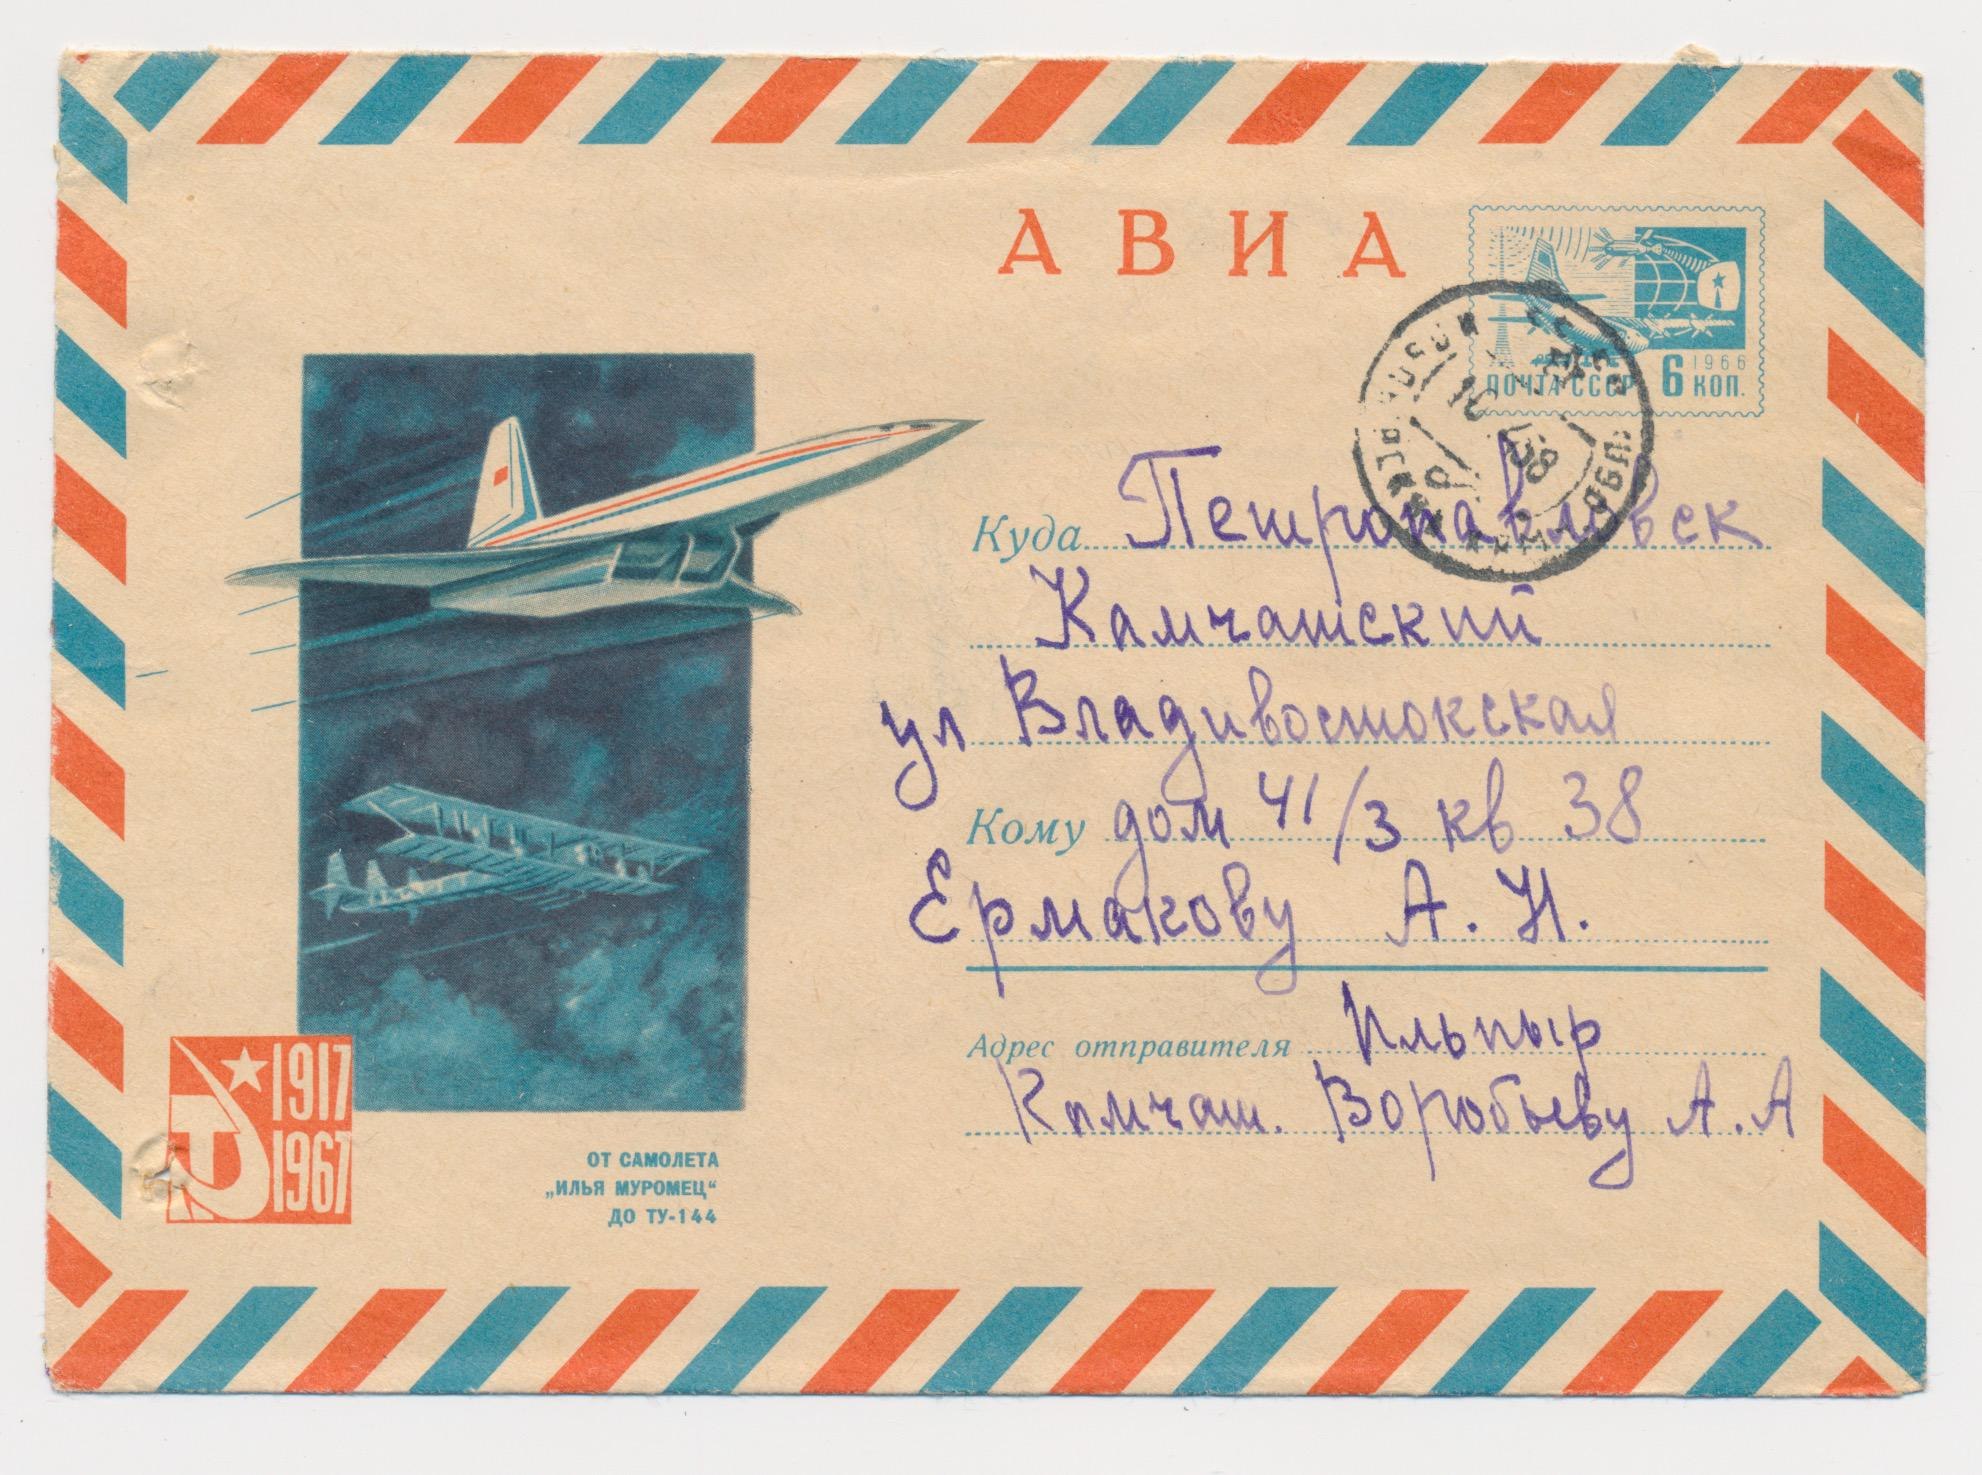 АВИА
1966
ПОЧТА СССР 6 КОП.
Куда Петропавловск
Камчатский
ул Владивостокская
Кому дом 41/3 кв 38
Ермакову А. Н.
Адрес отправителя Ильпыр
Камчат. Воробьеву А.А
1917
1967
ОТ САМОЛЕТА
„ИЛЬЯ МУРОМЕЦ“
ДО ТУ-144